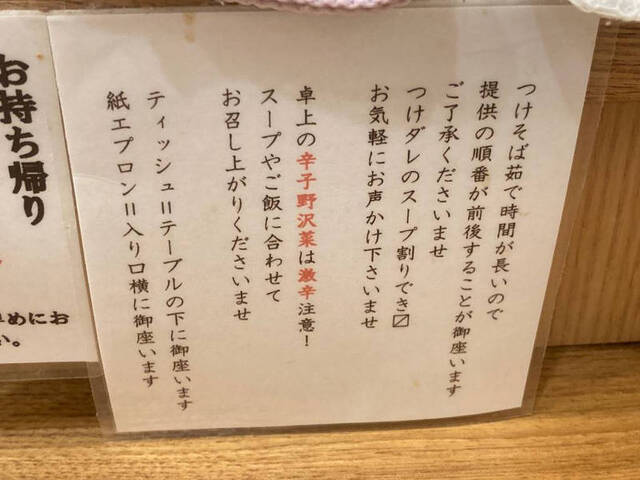 つけそば茹で時間が長いので
提供の順番が前後することが御座います
ご了承くださいませ
つけダレのスープ割りでき〼
お気軽にお声かけ下さいませ
卓上の辛子野沢菜は激辛注意！
スープやご飯に合わせて
お召し上がりくださいませ
ティッシュ＝テーブルの下に御座います
紙エプロン＝入り口横に御座います
お持ち帰り
めにお
い。